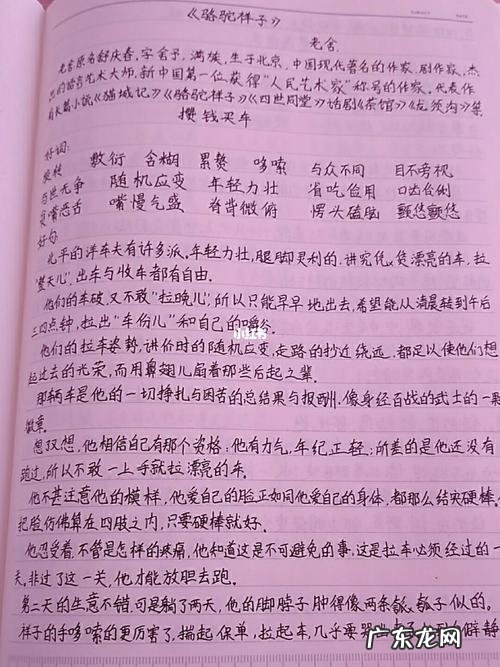 《骆驼祥子》
老舍.
老舍原名舒庆春,字舍予,满族,生于北京,中国现代著名的作家.剧作家,杰
的语言艺术大师,新中国第一位获得“人民艺术家”称号的作家.代表作
有长篇小说《猫城记》《骆驼祥子》《四世同堂》话剧《茶馆》《龙须沟》等
攒钱买车
好词:
敷衍 含糊 累赘 哆嗦 与众不同 目不旁视
与世无争 随机应变 年轻力壮 省吃俭用 口齿伶俐
嘴慢气盛 脊背微俯 愣头磕脑 颤悠颤悠
好句
北平的洋车夫有许多派.年轻力壮,腿脚灵利的.讲究赁货漂亮的车,拉
“整天儿”.出车与收车都有自由.
他们的车破,又不敢“拉晚儿”,所以只能早早地出去,希望能从清晨转到午后
三四点钟,拉出“车份儿”和自己的嚼谷.
他们的拉车姿势,讲价时的随机应变,走路的抄近绕远,都足以使他们想
起过去的光荣,而用鼻翅儿扇着那些后起之辈.
那辆车是他的一切挣扎与困苦的总结果与报酬.像身经百战的武士的一颗
徽章.
想了又想,他相信自己有那个资格:他有力气,年纪正轻;所差的是他还没有
跑过,所以不敢一上手就拉漂亮的车.
他不甚注意他的模样,他爱自己的脸正如同他爱自己的身体,都那么结实硬棒.他
把脸仿佛算在四肢之内,只要硬棒就好.
他忍受着,不管是怎样的疼痛,他知道这是不可避免的事;这是拉车必须经过的一
关,非过了这一关,他才能放胆去跑.
第二天的生意不错,可是躺了两天,他的脚脖子肿得像两条瓠子似的.
祥子的手哆嗦的更厉害了,揣起保单,拉起车,几乎要哭 僻静
小红书
广东龙网